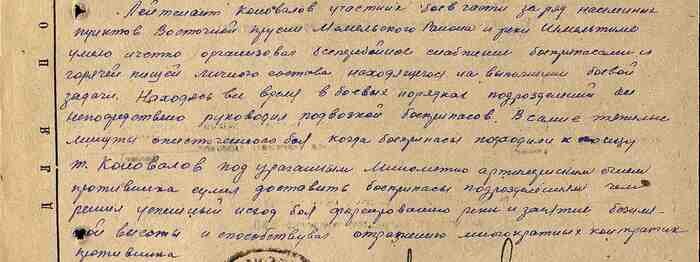 Лейтенант Коновалов участник боев части за ряд населенных
пунктов Восточной Прусии Мемельского Района и реки
умело и четко организовал бесперебойное снабжение боеприпасами и
горячей пищей личного состава находящегося на выполнении боевой
задачи. Находясь все время в боевых порядках подразделений он
непосредствено руководил подвозкой боеприпасов. В самые тяжелые
минуты ожесточенного боя когда боеприпасы подходили к концу
т. Коновалов под ураганным минометно артилерийским огнем
противника сумел доставить боеприпасы подразделениям чем
решил успешный исход боя форсированию реки и занятие безимян-
ной высоты и способствовал отражению многократных контратак
противника